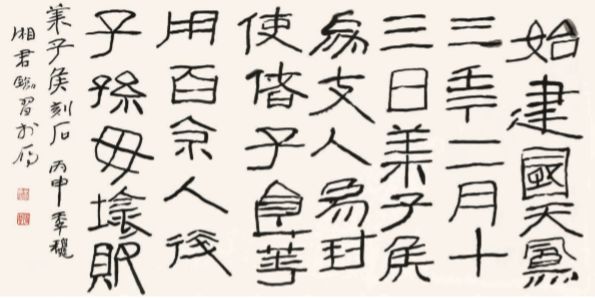 始建國天鳳
三年二月十
三日莱子侯
為支人為封
使偖子食等
用百余人後
子孫毋壞敗
莱子侯刻石 丙申季穐
湘君臨習於